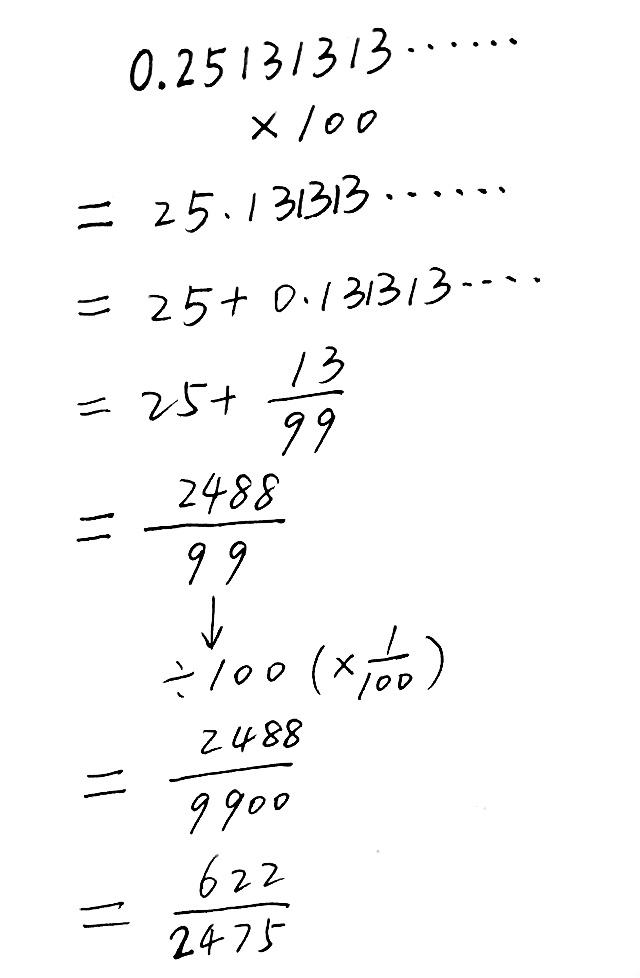 0.25131313......
×100
= 25.131313......
= 25+ 0.131313....
= 25+ 13/99
= 2488/99
↓
÷100 (×1/100)
= 2488/9900
= 622/2475